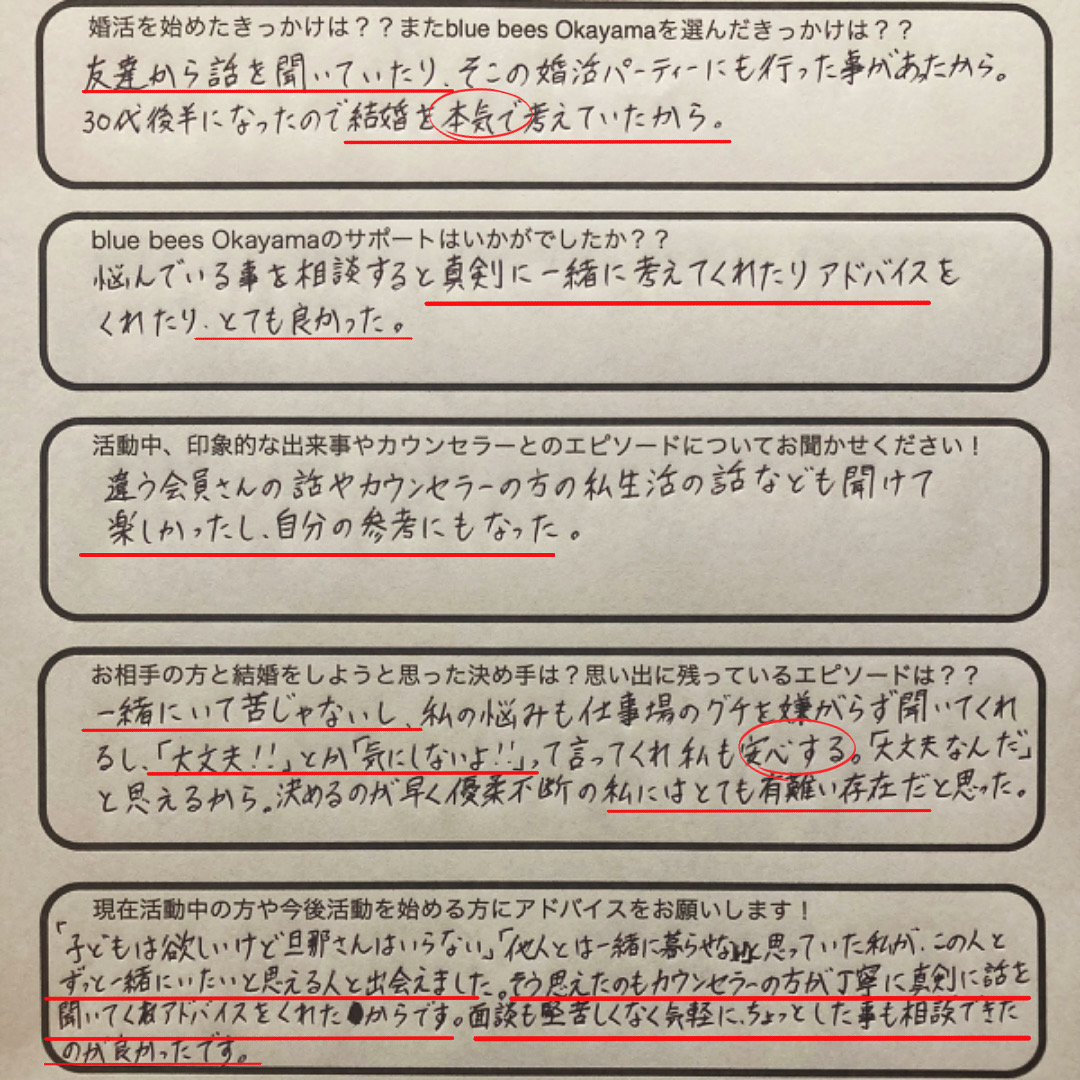 婚活を始めたきっかけは？？またblue bees Okayamaを選んだきっかけは？？
友達から話を聞いていたり、そこの婚活パーティーにも行った事があったから。
30代後半になったので結婚を本気で考えていたから。
blue bees Okayamaのサポートはいかがでしたか？？
悩んでいる事を相談すると真剣に一緒に考えてくれたりアドバイスを
くれたり、とても良かった。
活動中、印象的な出来事やカウンセラーとのエピソードについてお聞かせください！
違う会員さんの話やカウンセラーの方の私生活の話なども聞けて
楽しかったし、自分の参考にもなった。
お相手の方と結婚をしようと思った決め手は？思い出に残っているエピソードは？？
一緒にいて苦じゃないし、私の悩みも仕事場のグチを嫌がらず聞いてくれ
るし、「大丈夫！！」とか「気にしないよ！！」って言ってくれ私も安心する。「大丈夫なんだ」
と思えるから。決めるのが早く優柔不断の私にはとても有難い存在だと思った。
現在活動中の方や今後活動を始める方にアドバイスをお願いします！
「子どもは欲しいけど旦那さんはいらない」「他人とは一緒に暮らせない」と思っていた私が、この人と
ずっと一緒にいたいと思える人と出会えました。そう思えたのもカウンセラーの方が丁寧に真剣に話を
聞いてくれアドバイスをくれたからです。面談も堅苦しくなく気軽に、ちょっとした事も相談できた
のが良かったです。